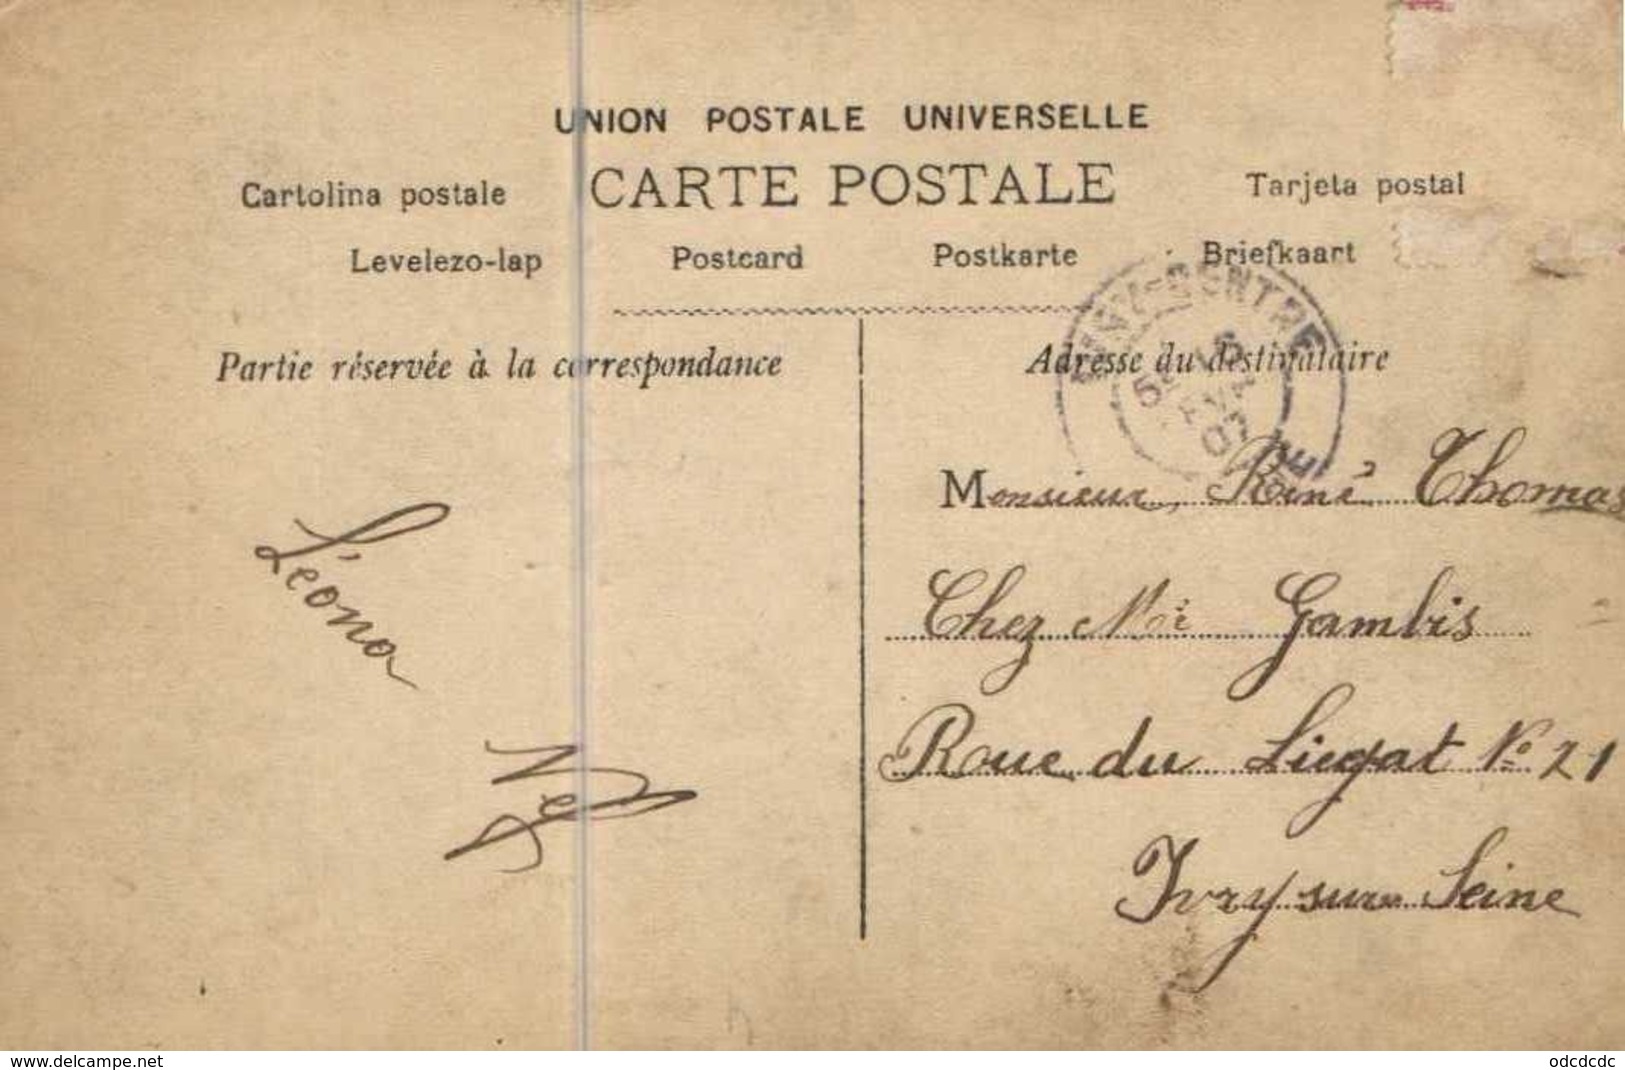 UNION POSTALE UNIVERSELLE
Cartolina postale CARTE POSTALE Tarjeta postal
Levelezo-lap Postcard Postkarte Briefkaart
Partie réservée à la correspondance
Léona
Nef
Adresse du destinataire
Monsieur René Thomas
Chez Mr Gambis
Roue du Liegat No 21
Ivry sur Seine
www.delcampe.net
odcdcdc